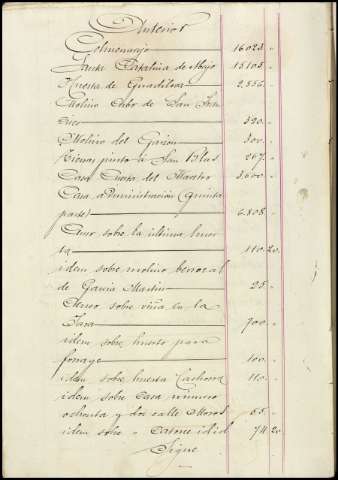 Anterior
Colmenarejo 16023 "
Santa Catalina de Abajo 15105 "
Huerta de Guadiloa 2,556 "
Molino Abr de San Fran
cisco 320 "
Molino del Gazon 300 "
Tierras junto a San Blas 267 "
Casa Cuesta del Mercado 3,600 "
Casa administración (quinta
parte) 6.808 "
Censo sobre la última huer
ta 110 20
idem sobre molino berrocal
de Garcia Martin 25 "
Censo sobre viña en la
Jara 700 "
idem sobre huerto para
forraje 100 "
idem sobre huerta Cachorra 110 "
idem sobre Casa número
ochenta y dos calle Moros 55 "
idem sobre " Catorce id id 711 20
Sigue